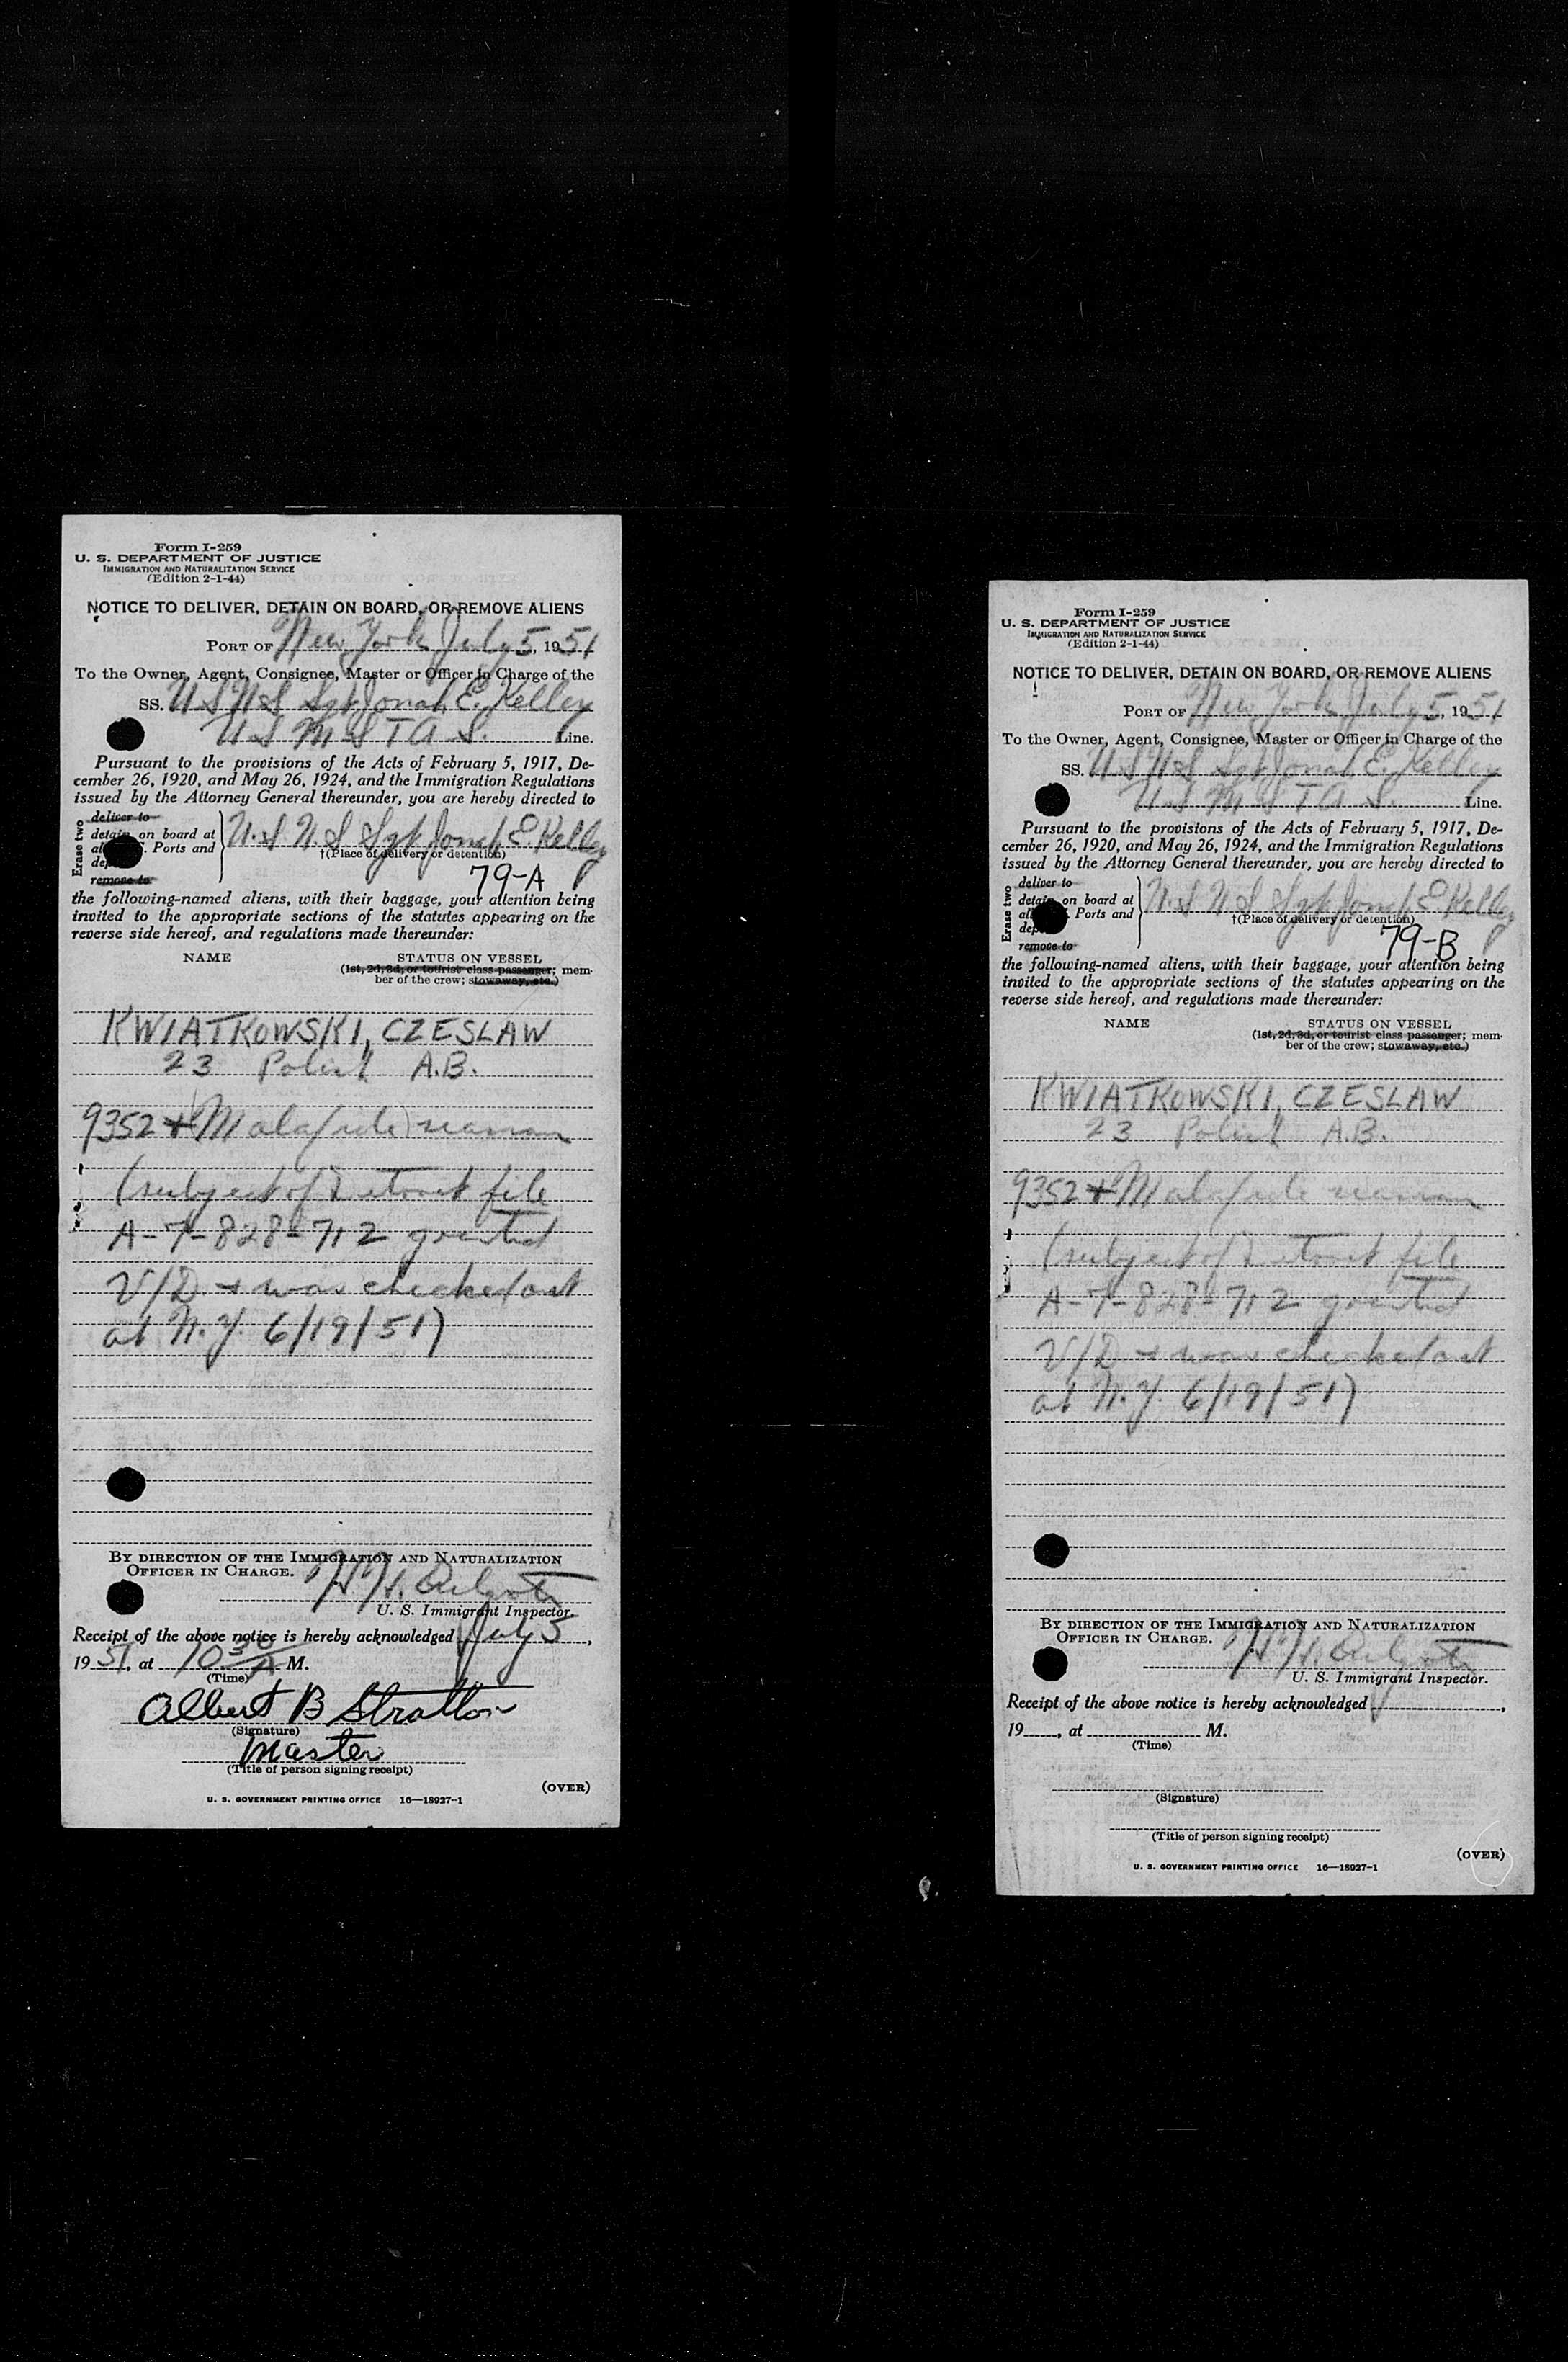 Form I-259
U. S. DEPARTMENT OF JUSTICE
IMMIGRATION AND NATURALIZATION SERVICE
(Edition 2-1-44)
NOTICE TO DELIVER, DETAIN ON BOARD, OR REMOVE ALIENS
PORT OF New York July 5, 1951
To the Owner, Agent, Consignee, Master or Officer in Charge of the
SS. USNS Sgt Jonah E. Kelley
U S M S T A S. Line.
Pursuant to the provisions of the Acts of February 5, 1917, De-
cember 26, 1920, and May 26, 1924, and the Immigration Regulations
issued by the Attorney General thereunder, you are hereby directed to
Erase two
deliver to
detain on board at
Ports and
remove to
U.S N.S Sgt E. Kelley
†(Place of delivery or detention)
79-A
the following-named aliens, with their baggage, your attention being
invited to the appropriate sections of the statutes appearing on the
reverse side hereof, and regulations made thereunder:
NAME STATUS ON VESSEL
(1st, 2d, 3d, or tourist class passenger; mem-
ber of the crew; stowaway, etc.)
KWIATKOWSKI, CZESLAW
23 Polish A.B.
9352 + Malafide seaman
(subject of Detroit file
A-7-828-712 granted
V/D + was checked out
at N.Y. 6/19/51)
BY DIRECTION OF THE IMMIGRATION AND NATURALIZATION
OFFICER IN CHARGE.
U. S. Immigrant Inspector.
Receipt of the above notice is hereby acknowledged July 5,
1951, at 10 30 A M.
(Time)
Albert B Stratton
(Signature)
Master
(Title of person signing receipt)
(OVER)
U. S. GOVERNMENT PRINTING OFFICE 16—18927-1
Form I-259
U. S. DEPARTMENT OF JUSTICE
IMMIGRATION AND NATURALIZATION SERVICE
(Edition 2-1-44)
NOTICE TO DELIVER, DETAIN ON BOARD, OR REMOVE ALIENS
PORT OF New York July 5, 1951
To the Owner, Agent, Consignee, Master or Officer in Charge of the
SS. USNS Sgt Jonah E. Kelley
U S M S T A S. Line.
Pursuant to the provisions of the Acts of February 5, 1917, De-
cember 26, 1920, and May 26, 1924, and the Immigration Regulations
issued by the Attorney General thereunder, you are hereby directed to
Erase two
deliver to
detain on board at
Ports and
remove to
U.S N.S Sgt E Kelley
†(Place of delivery or detention)
79-B
the following-named aliens, with their baggage, your attention being
invited to the appropriate sections of the statutes appearing on the
reverse side hereof, and regulations made thereunder:
NAME STATUS ON VESSEL
(1st, 2d, 3d, or tourist class passenger; mem-
ber of the crew; stowaway, etc.)
KWIATKOWSKI, CZESLAW
23 Polish A.B.
9352 + Malafide seaman
(subject of Detroit file
A-7-828-712 granted
V/D + was checked out
at N.Y. 6/19/51)
BY DIRECTION OF THE IMMIGRATION AND NATURALIZATION
OFFICER IN CHARGE.
U. S. Immigrant Inspector.
Receipt of the above notice is hereby acknowledged
19 , at M.
(Time)
(Signature)
(Title of person signing receipt)
(OVER)
U. S. GOVERNMENT PRINTING OFFICE 16—18927-1